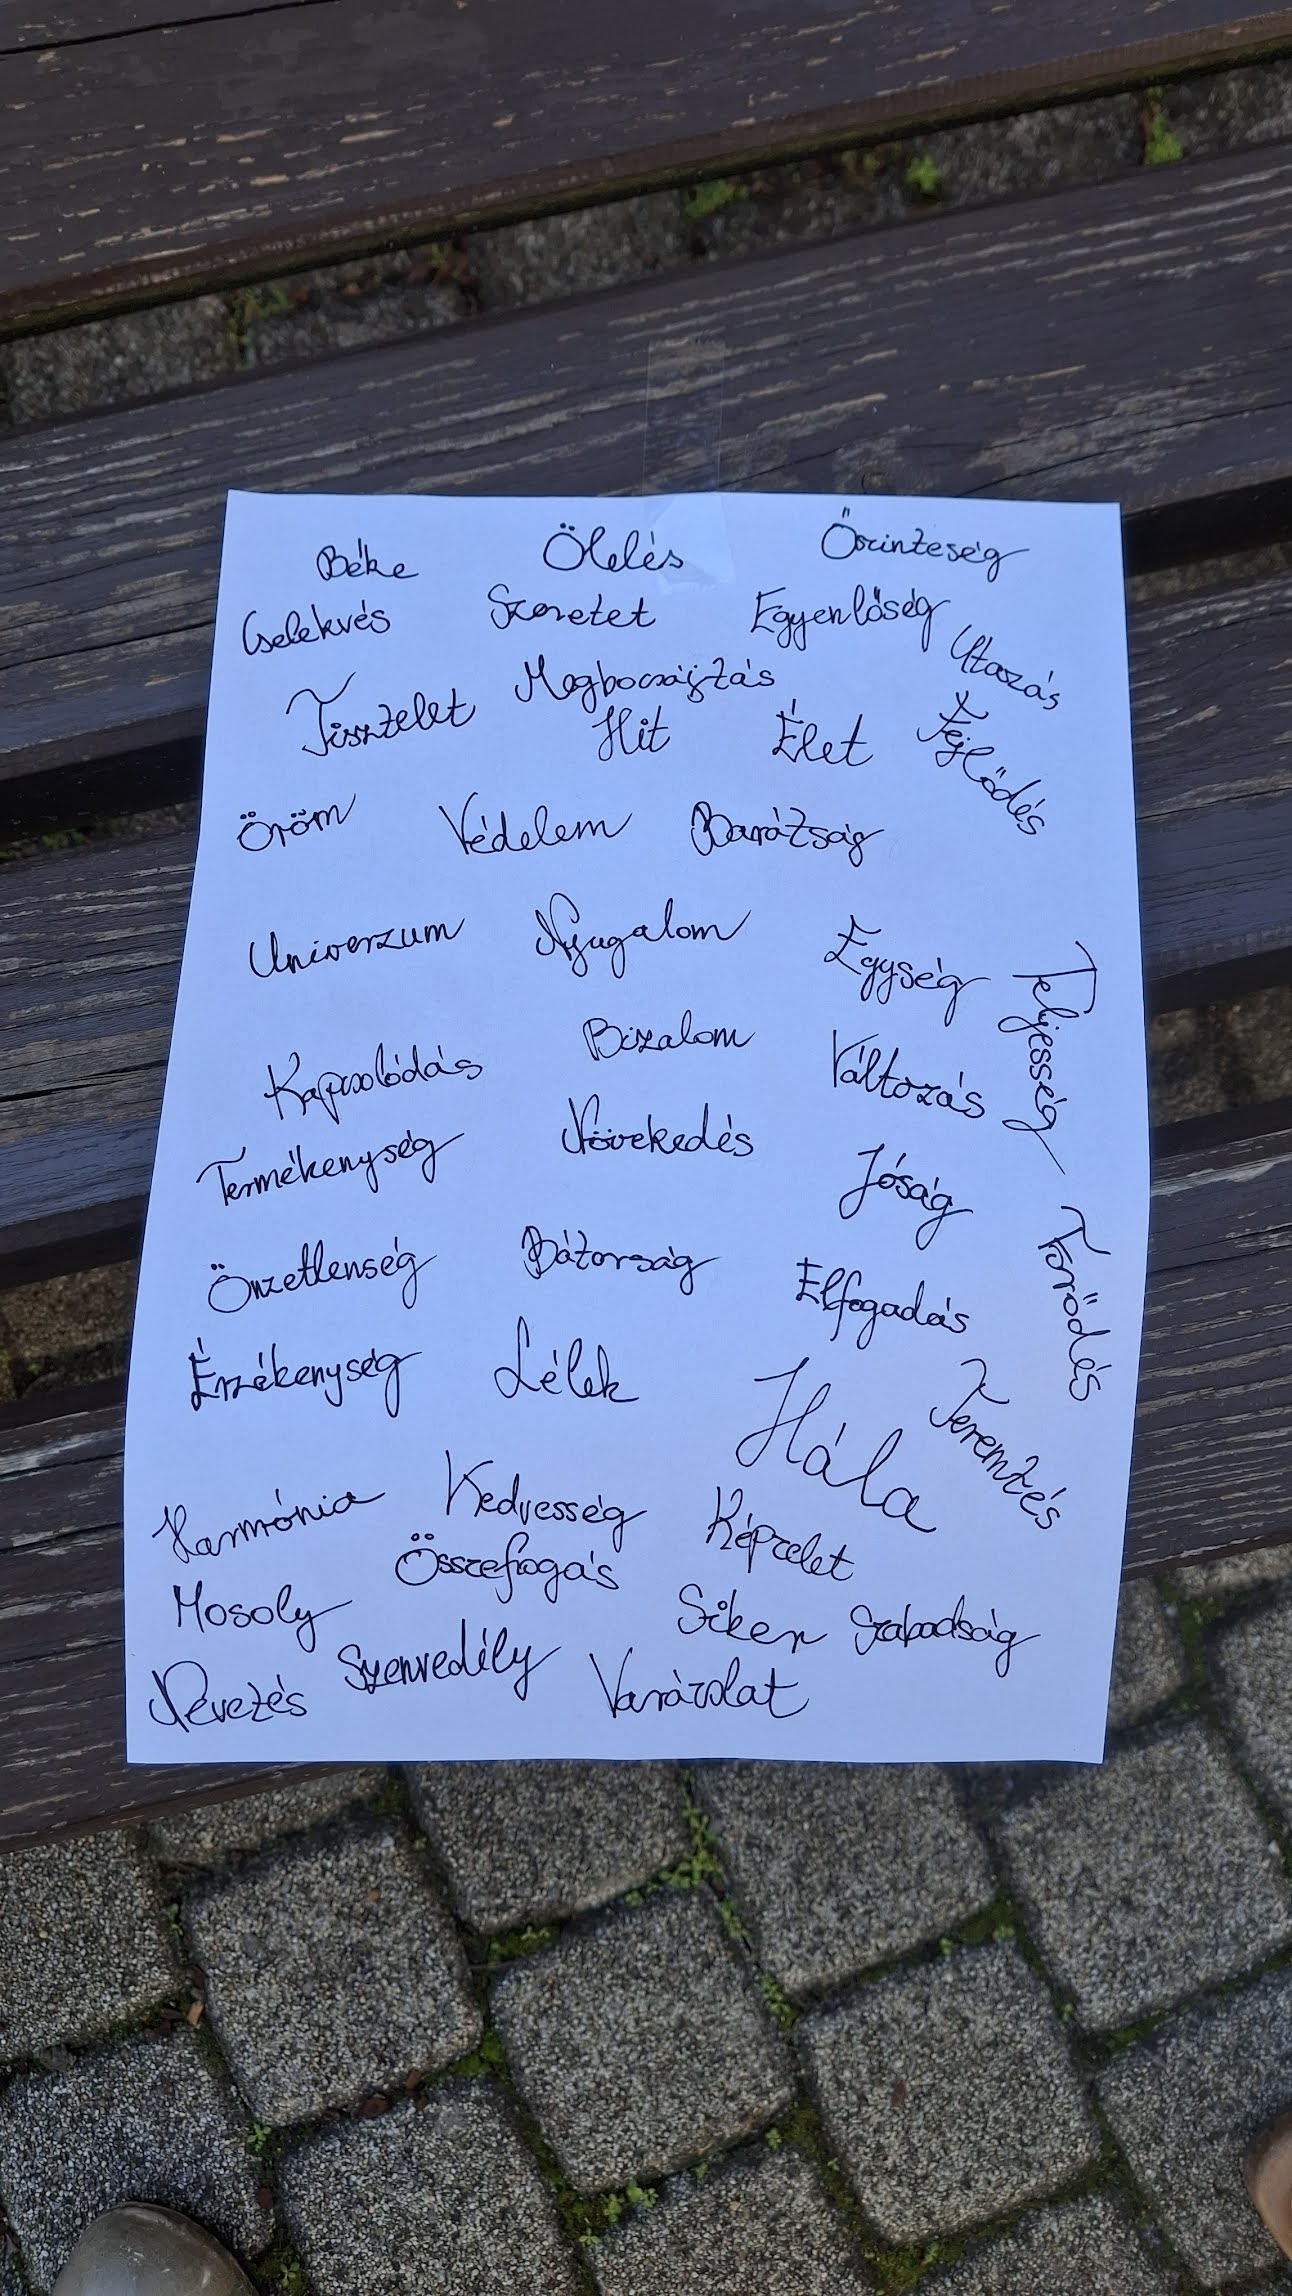 Béke Ölelés Őszinteség
Cselekvés Szeretet Egyenlőség
Utazás
Tisztelet Megbocsájtás
Hit Élet Fejlődés
Öröm Védelem Barátság
Univerzum Nyugalom Egység
Teljesség
Kapcsolódás Bizalom Változás
Termékenység Növekedés Jóság
Törődés
Önzetlenség Bátorság Elfogadás
Érzékenység Lélek Hála Teremtés
Harmónia Kedvesség Képzelet
Összefogás
Mosoly Siker Szabadság
Nevetés Szenvedély Varázslat